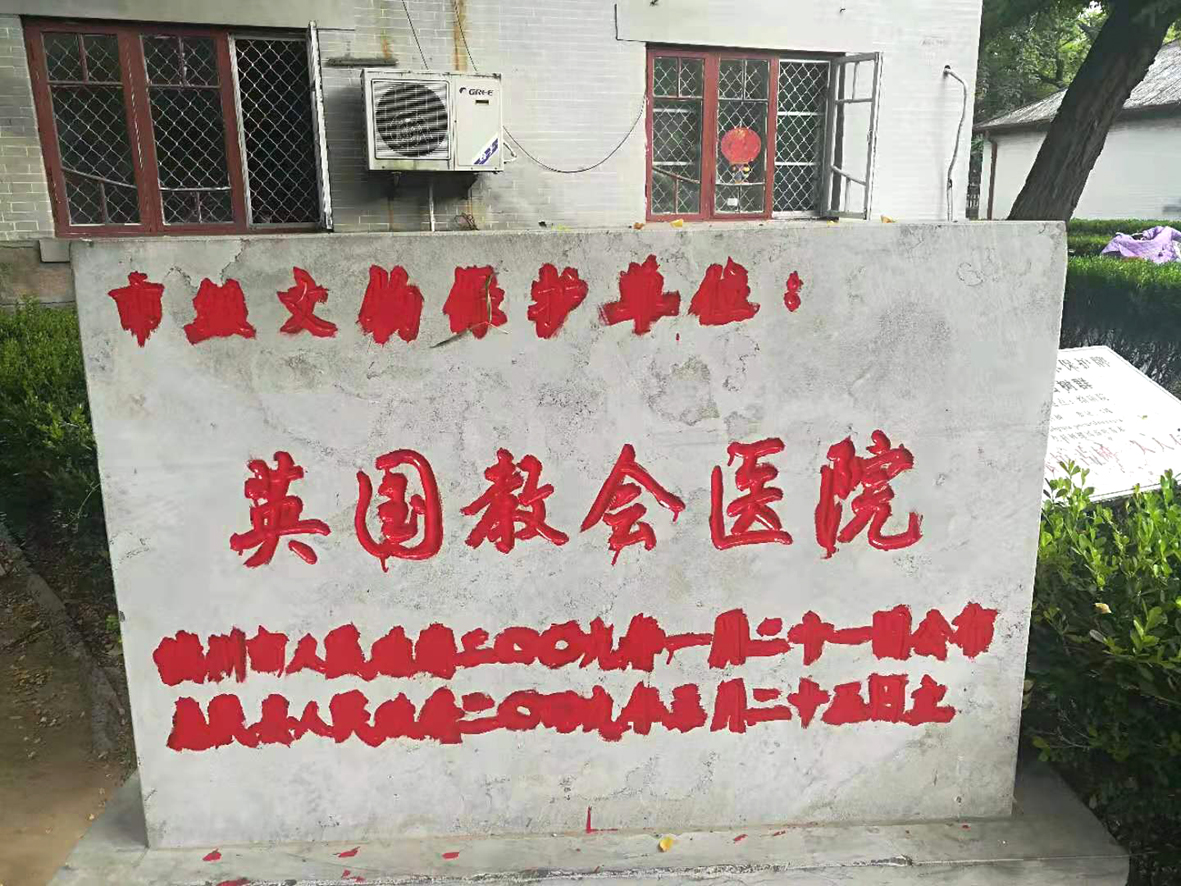 GREE
市级文物保护单位：
英国教会医院
滨州市人民政府二〇〇九年一月二十一日公布
惠民县人民政府二〇〇九年月二十五日立